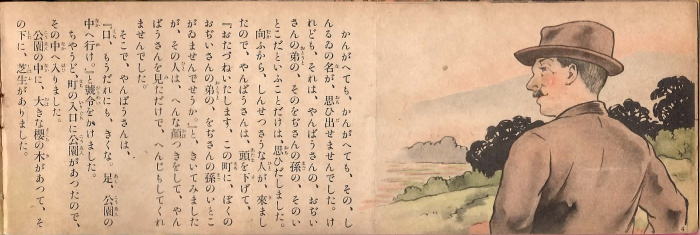 かんがへても、かんがへても、その、し
んるゐの名が、思ひ出せませんでした。け
れども、それは、やんばうさんの、おぢい
さんの弟の、そのをぢさんの孫の、そのい
とこだといふことだけは、思ひだしました。
向ふから、しんせつさうな人が、來まし
たので、やんばうさんは、頭を下げて、
『おたづねいたします、この町に、ぼくの
おぢいさんの弟の、をぢさんの孫のいとこ
がゐませんでせうか。』と、きいてみました
が、その人は、へんな顏つきをして、やん
ばうさんを見ただけで、へんじもしてくれ
ませんでした。
そこで、やんばうさんは、
『口、もうだれにも、きくな。足、公園の
中へ行け。』と號令をかけました。
ちやうど、町の入口に公園があつたので、
その中へ入りました。
公園の中に、大きな櫻の木があつて、そ
の下に、芝生がありました。